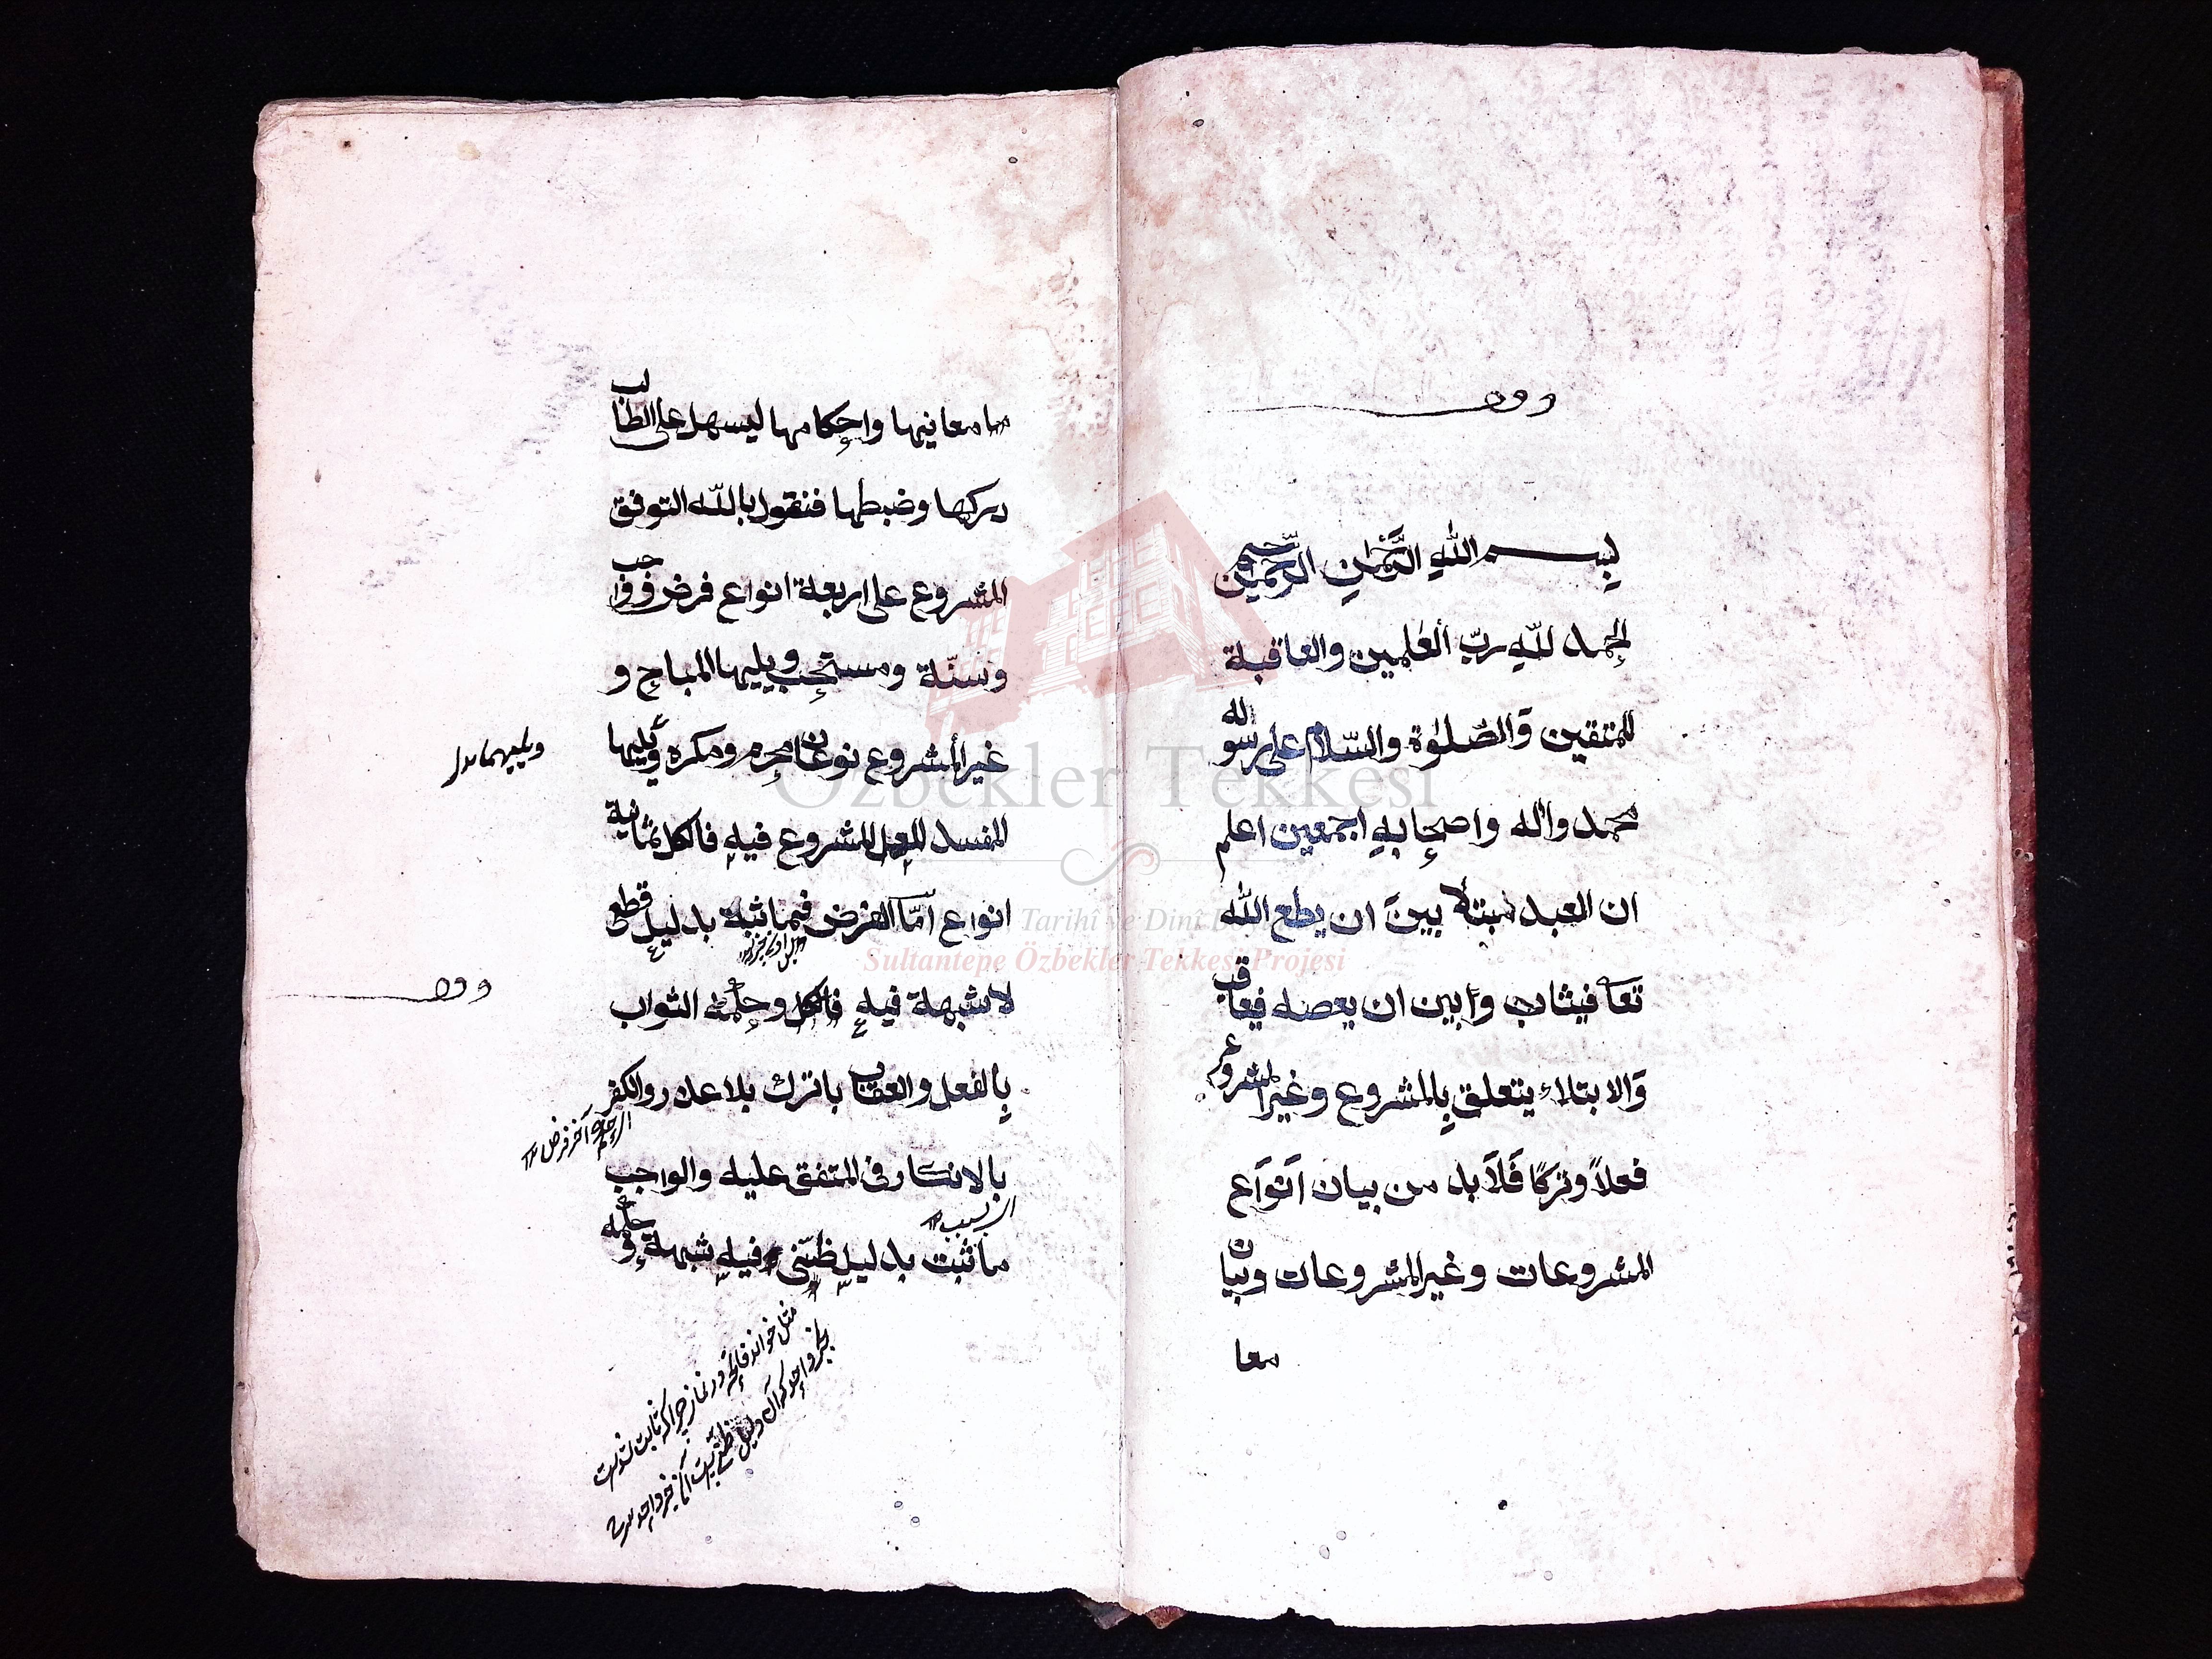 بسم الله الرحمن الرحيم
الحمد لله رب العلمين والعاقبة
للمتقين والصلوة والسلام على رسوله
محمد واله واصحابه اجمعين اعلم
ان العبد مبتلا بين ان يطع الله
تعا فيثاب وابين ان يعصه فيعاقب
والابتلاء يتعلق بالمشروع وغير المشروع
فعلا وتركا فلا بد من بيان انواع
المشروعات وغير المشروعات وبيان
معا
معانيها واحكامها ليسهل على الطالب
دركها وضبطها فنقول بالله التوفق
المشروع على اربعة انواع فرض وواجب
وسنة ومستحب ويليها المباح و
غير المشروع نوعان محرم ومكره ويليها
ويليهما
المفسد للعمل المشروع فيه فالكل ثمانية
انواع اما الفرض فما ثبت بدليل قطع
لا شبهة فيه وحكمه الثواب
بالفعل والعقاب باترك بلا عذر والكفر
بالانكار فى المتفق عليه والواجب
ما ثبت بدليل ظنى فيه شبهة وحكمه
مثل خواند فاتحه در نماز چرا كه ثابت شدست
بخبر واحد كه آن دليل ظنى
Özbekler Tekkesi
Tarihî ve Dinî
Sultantepe Özbekler Tekkesi Projesi